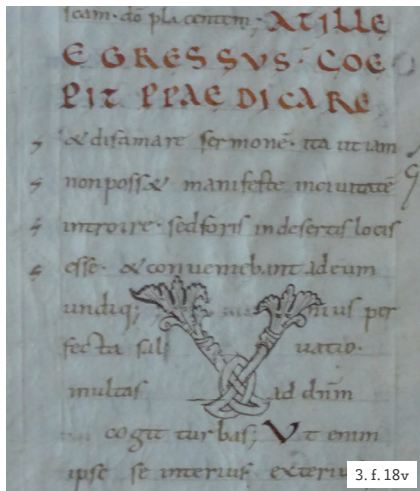 dō placentem· AT ILLE
EGRESSVS· COE
PIT PPAEDICARE
& difamare sermonē· ita ut iam
non poss& manifeste in ciuitatē
introire· sed foris in desertis locis
esse· & conueniebant ad eum
undiq;
per
fecta sal uatio·
multas ad dn̄m
cogit turbas; Vt enim
ipse se interius
3. f. 18v